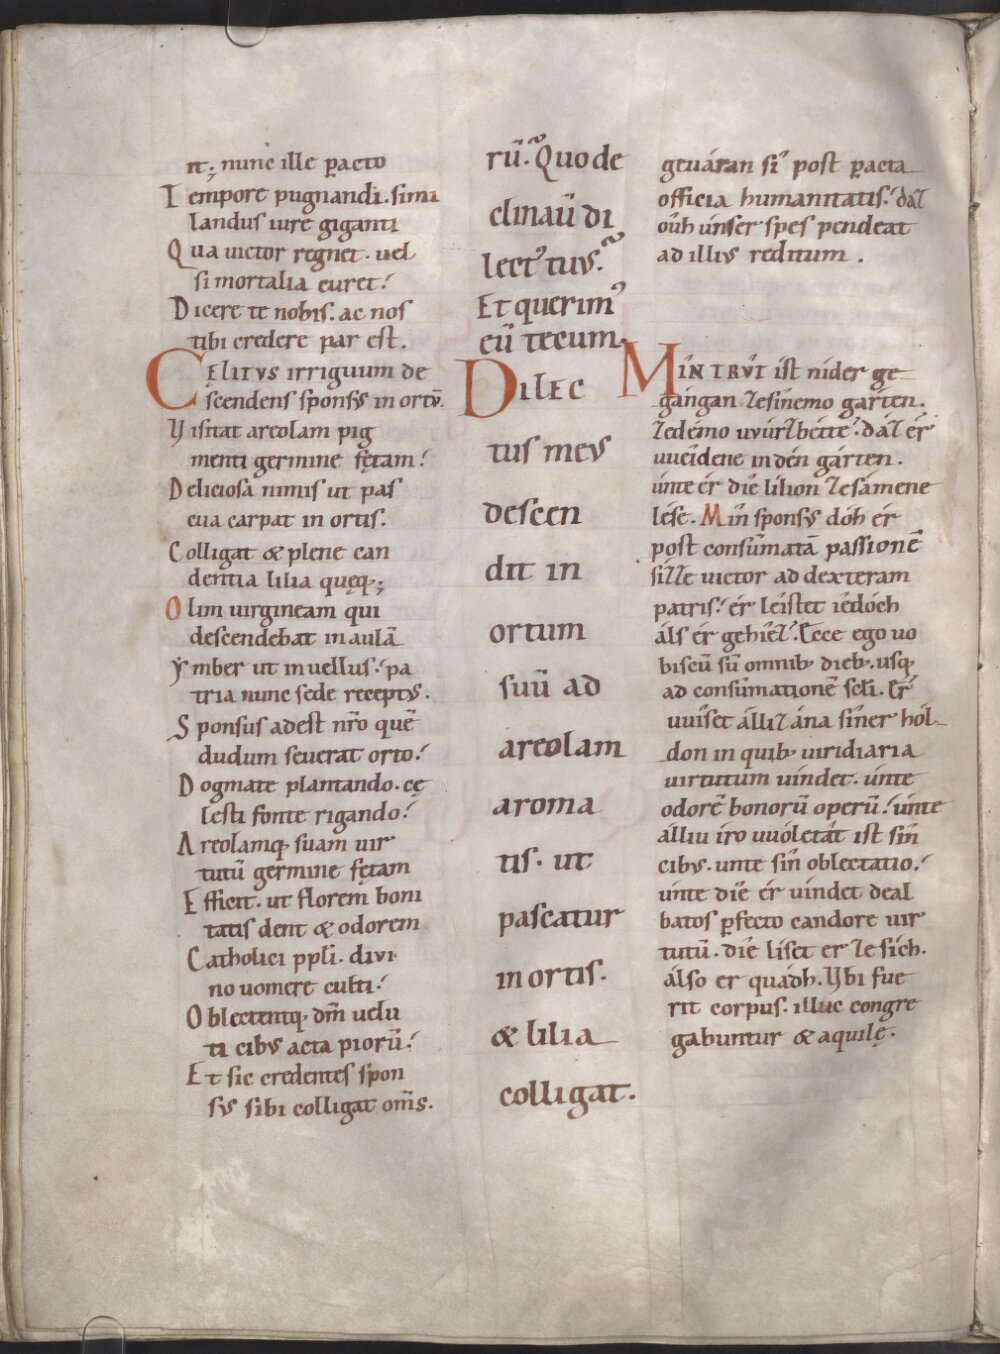 nt. nunc ille pacto
Tempore pugnandi. simu
landus iure giganti
Qua uictor regnet. uel
si mortalia curet?
Dicere te nobis. ac nos
tibi credere par est.
CĘLITVS irriguum de
scendens sponsvs in ortū.
Visitat areolam pig
menti germine fętam?
Deliciosa nimis ut pas
cua carpat in ortis.
Colligat & plene can
dentia lilia quęq;
Olim uirgineam qui
descendebat in aulā
ymber ut in uellus? pa
tria nunc sede receptvs.
Sponsus adest nr̄o quē
dudum seuerat orto?
Dogmate plantando. cę
lesti fonte rigando?
Areolamq; suam uir
tutū germine fętam
Efficit. ut florem boni
tatis dent & odorem
Catholici ppli. divi
no uomere culti?
Oblectentq; dm̄ uelu
ti cibvs acta piorū?
Et sic credentes spon
svs sibi colligat om̄s.
rū? Quo de
clinauit di
lect᾿ tuvs?
Et querim᾿
eū tecum.
DILEC
tus mevs
descen
dit in
ortum
suū ad
areolam
aroma
tis. ut
pascatur
in ortis.
& lilia
colligat.
geuáran si᾿ post pacta
officia humanitatis? dáꝫ
oûh únser spes pendeat
ad illivs reditum.
MIN TRVT ist níder ge
gángan ꝫe sínemo gárten.
ꝫe démo uvúrꝫbétte? dáꝫ ér
uueídene in dén gárten.
únte ér die lílion ꝫesámene
lése. Mín sponsvs dóh ér
post consūmatā passionē
sîꝫꝫe uictor ad dexteram
patris? ér leístet iedóch
áls ér gehîeꝫ. Ecce ego uo
biscū sū omnib; dieb; usq;
ad consūmationē scli. Er
uuíset állíꝫ ána síner hól
don in quib; uiridiaria
uirtutum uíndet. únte
odorē bonorū operū? únte
álliu íro uvóletât ist sîn
cibvs. unte sîn oblectatio?
únte die ér uíndet deal
batos pfecto candore uir
tutū. die líset er ꝫe sích.
álso er quádh. Vbi fue
rit corpus. illuc congre
gabuntur & aquilę.